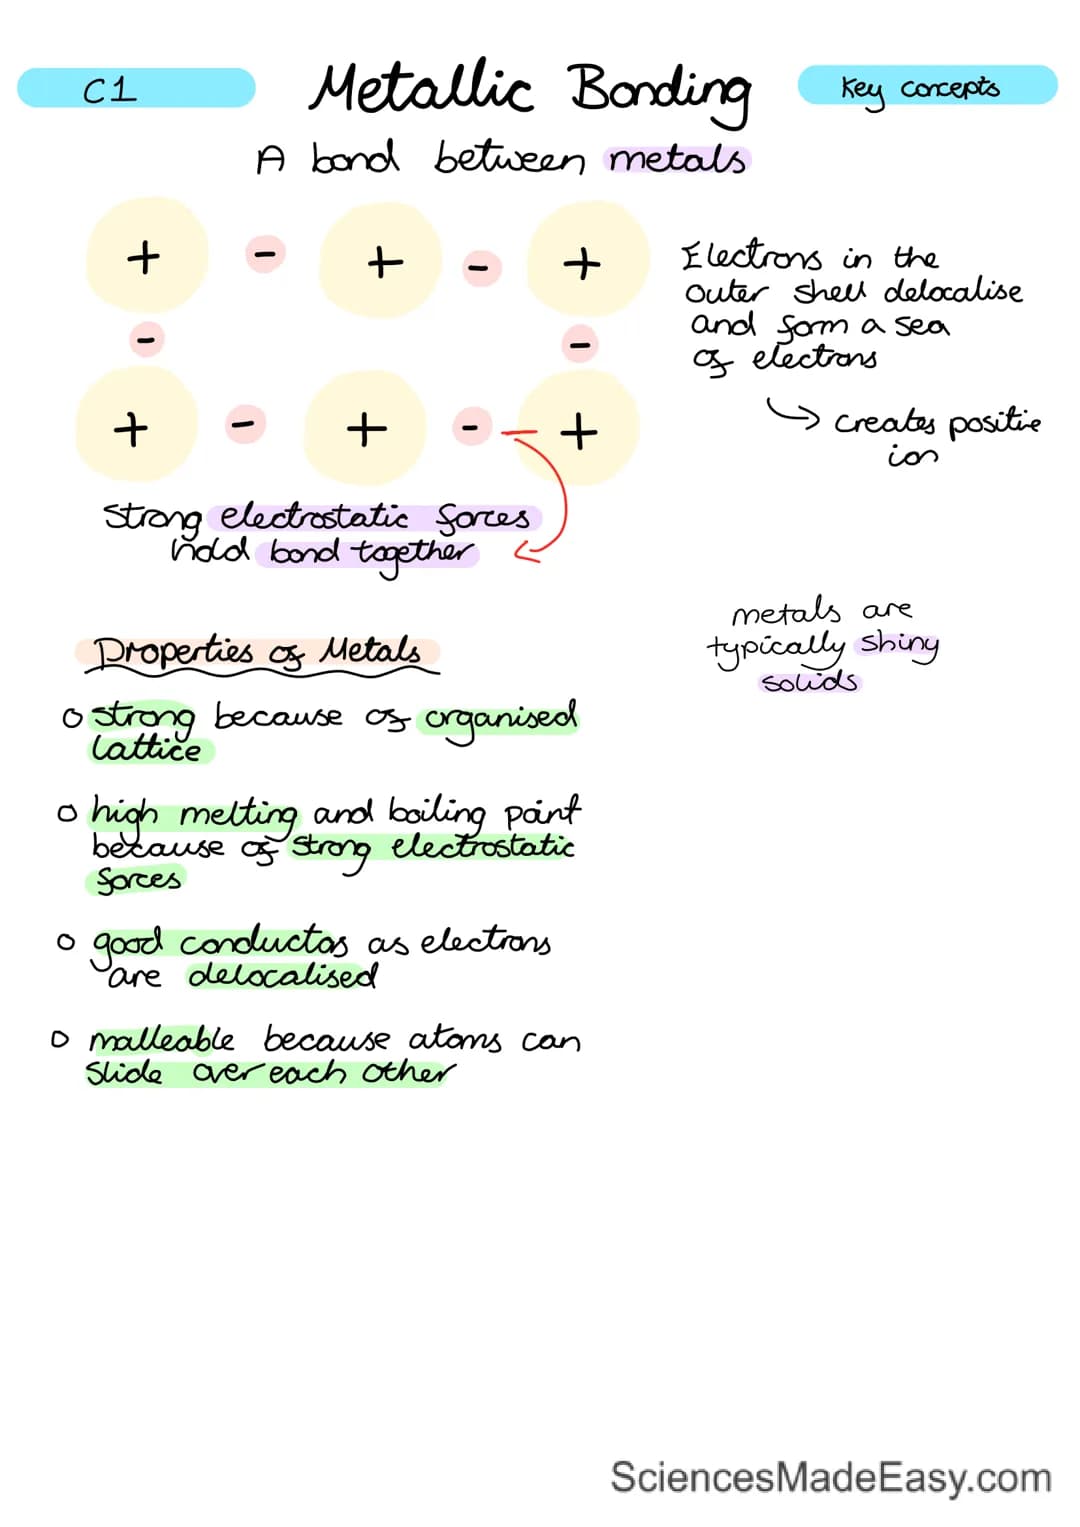 C1
Metallic Bonding
Key concepts
A bond between metals
+ - + - +
- -
+ - + - +
Electrons in the
outer shell delocalise
and form a sea
of electrons
→ creates positive
ion
Strong electrostatic forces
hold bond together
Properties of Metals
metals are
typically shiny
solids
o strong because of organised
lattice
o high melting and boiling point
because of strong electrostatic
forces
o good conductos as electrons
are delocalised
o malleable because atoms can
slide over each other
SciencesMadeEasy.com